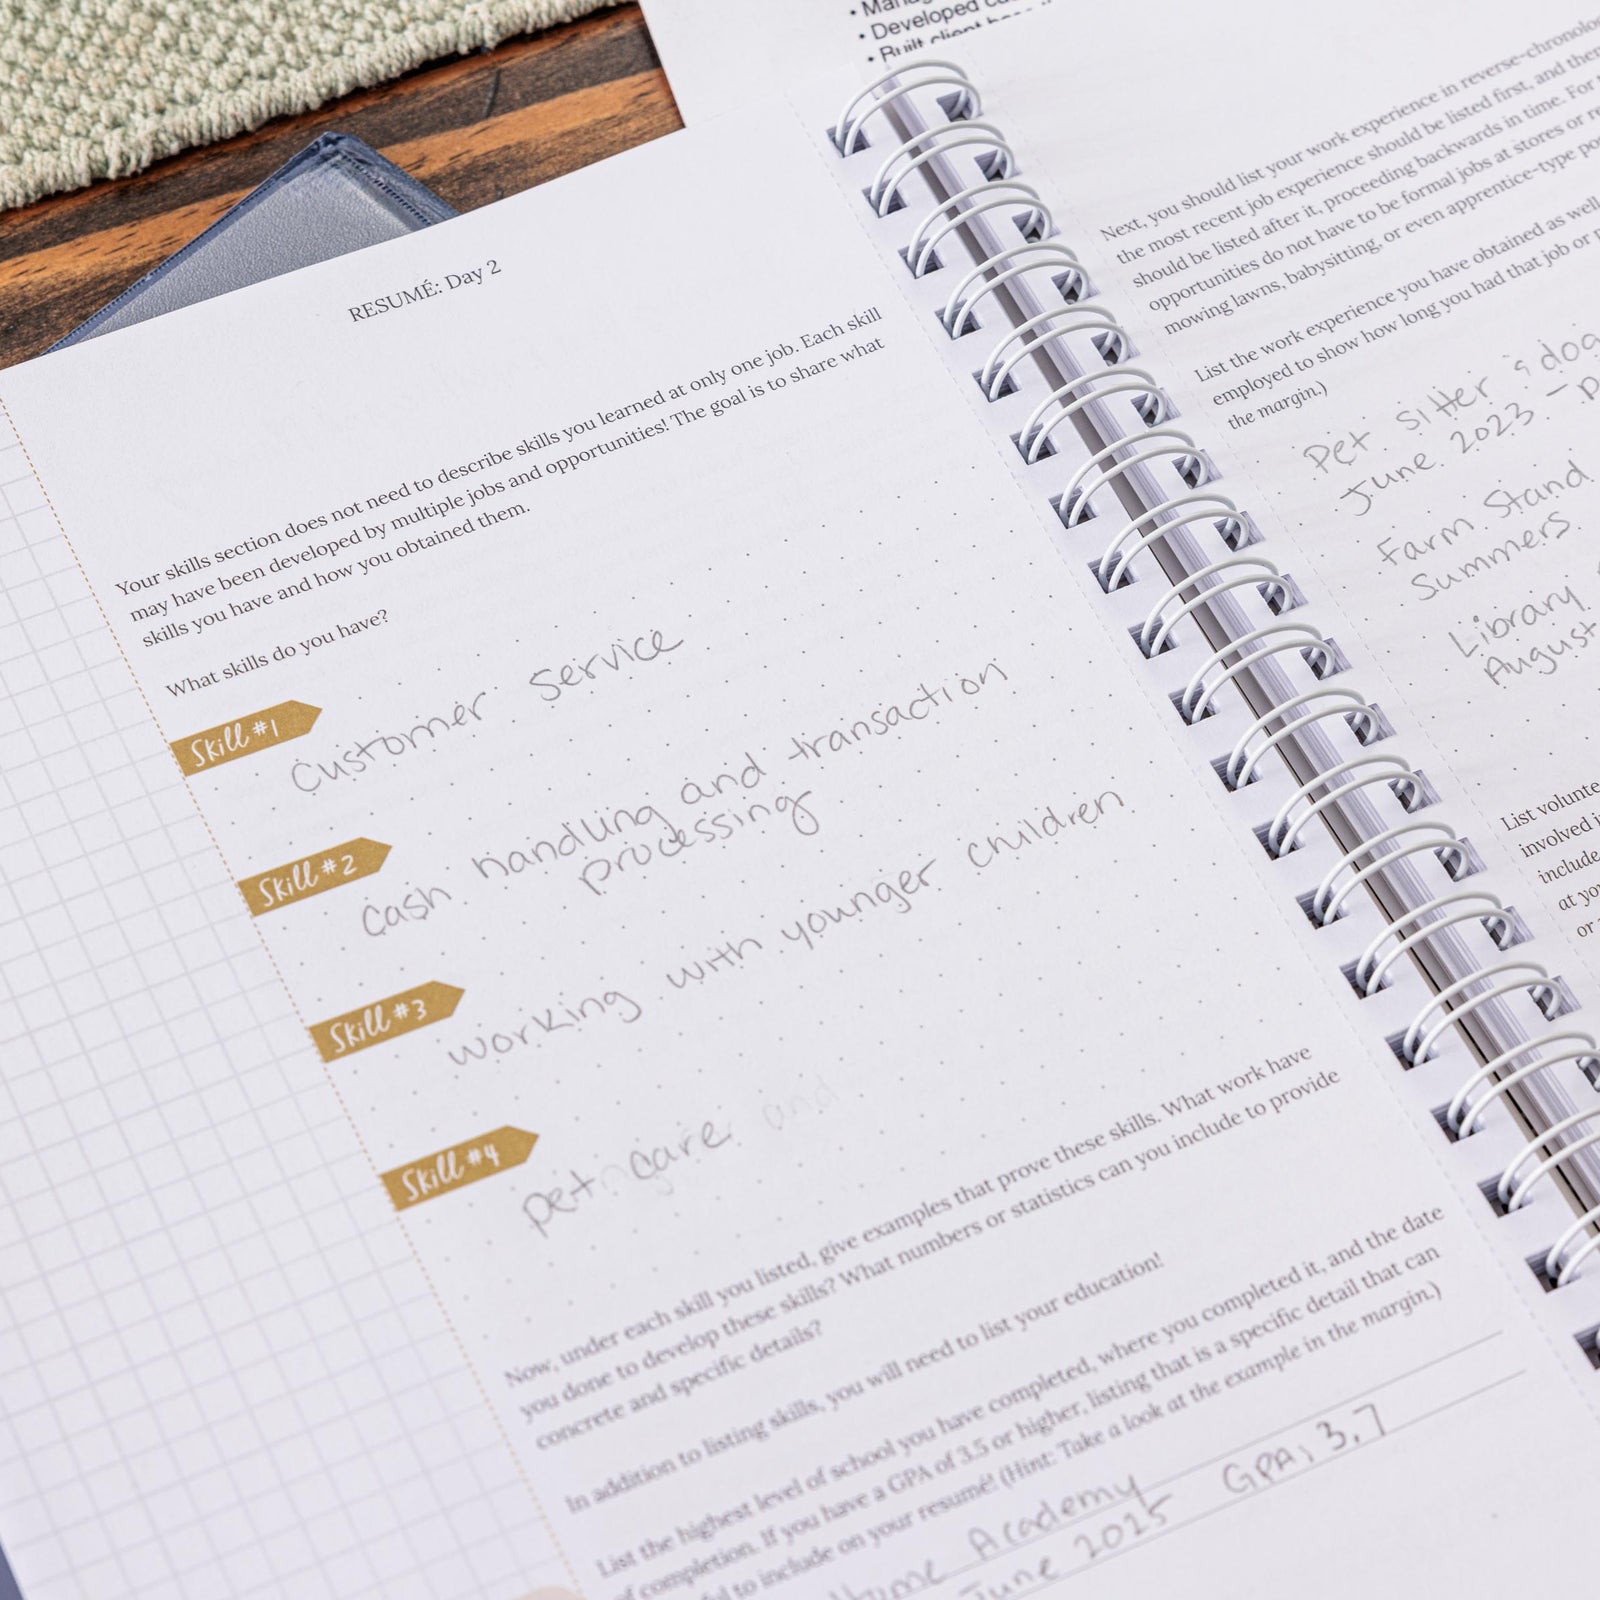 RESUMÉ: Day 2
Your skills section does not need to describe skills you learned at only one job. Each skill
may have been developed by multiple jobs and opportunities! The goal is to share what
skills you have and how you obtained them.
What skills do you have?
Skill #1
Customer service
Skill #2
Cash handling and transaction
processing
Skill #3
working with younger children
Skill #4
pet care and
Now, under each skill you listed, give examples that prove these skills. What work have
you done to develop these skills? What numbers or statistics can you include to provide
concrete and specific details?
In addition to listing skills, you will need to list your education!
List the highest level of school you have completed, where you completed it, and the date
of completion. If you have a GPA of 3.5 or higher, listing that is a specific detail that can
to include on your resumé! (Hint: Take a look at the example in the margin.)
Home Academy GPA: 3.7
June 2025
• Developed
• Built client base
Next, you should list your work experience in
the most recent job experience should be listed first, and
should be listed after it, proceeding backwards in time. For
opportunities do not have to be formal jobs at stores or
mowing lawns, babysitting, or even apprentice-type
List the work experience you have obtained as well
employed to show how long you had that job or
the margin.)
Pet sitter & dog
June 2023 –
Farm Stand
Summers
Library
August
List
involved
include
at
or